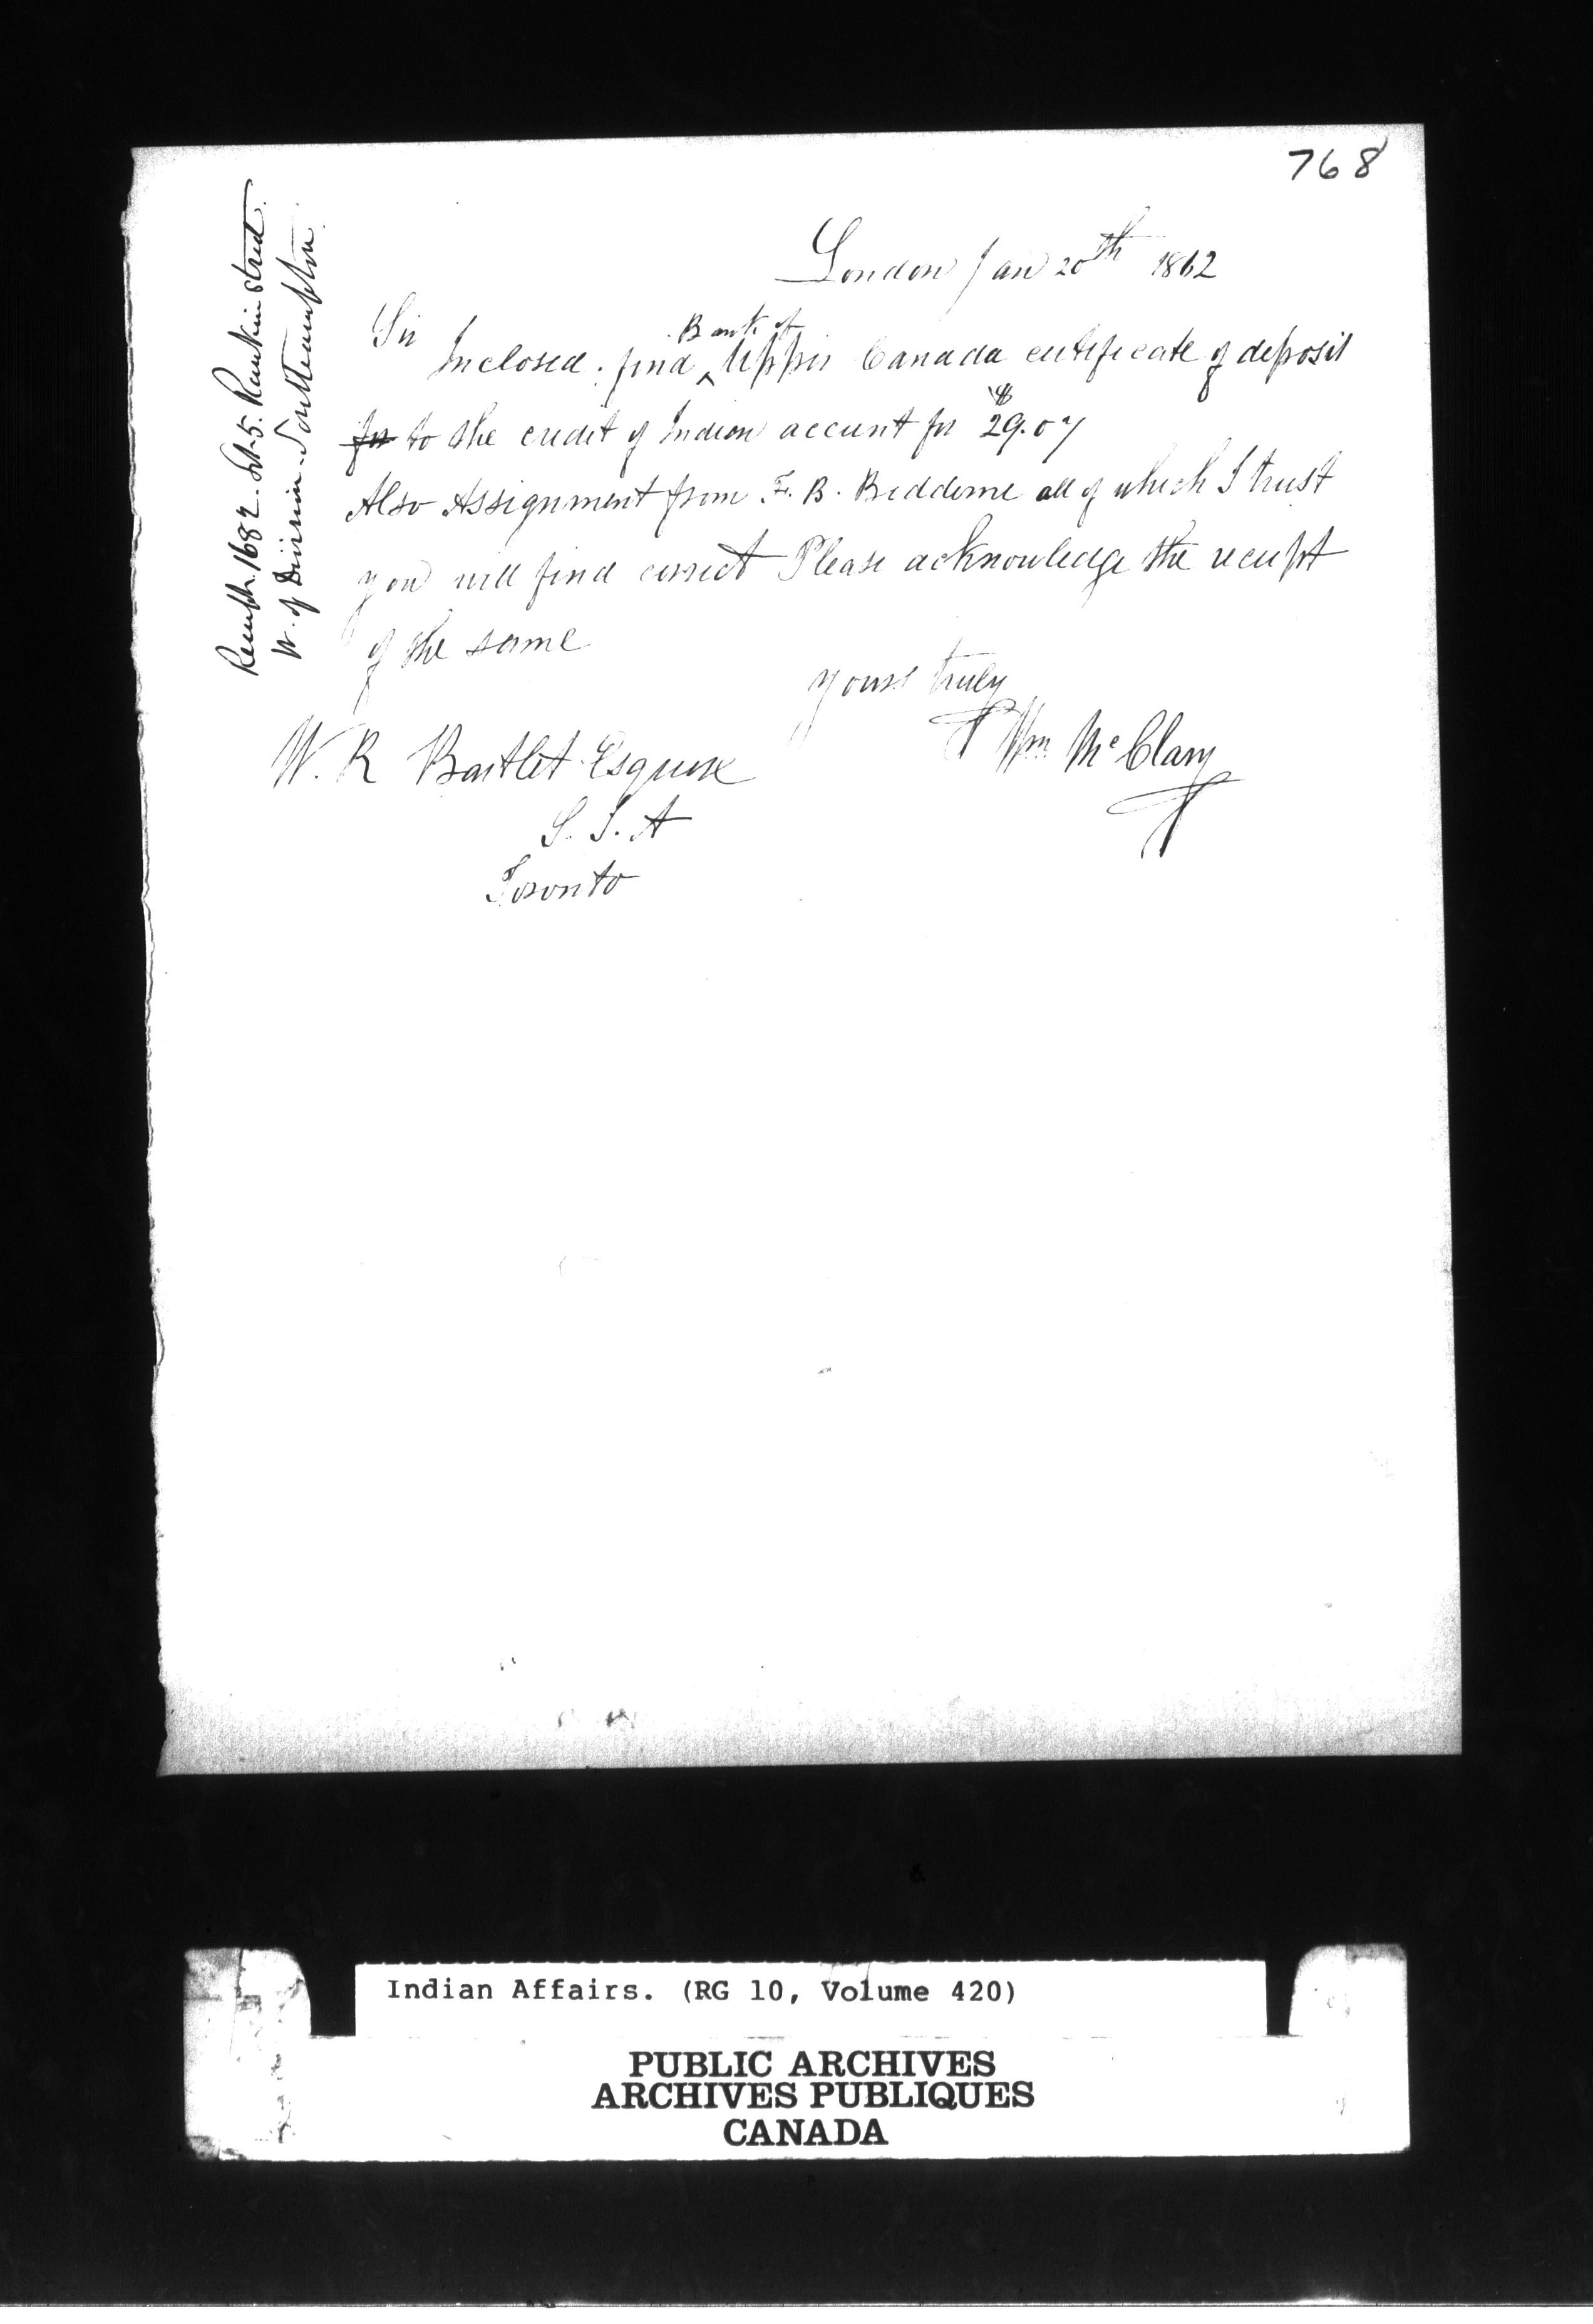 768
London Jan 20th 1862
Sir
Inclosed find Bank of Upper Canada certificate of deposit
for to the credit of Indian accunt for $29.07
Also Assignment from F. B. Beddome all of which I trust
you will find correct Please acknowledge the receipt
of the same
yours truly
Wm McClary
W. R Bartlet Esquire
S. I. A
Toronto
Receipt 1682. Lot 5. Rankin Street
W. of Division Southampton.
Indian Affairs. (RG 10, Volume 420)
PUBLIC ARCHIVES
ARCHIVES PUBLIQUES
CANADA